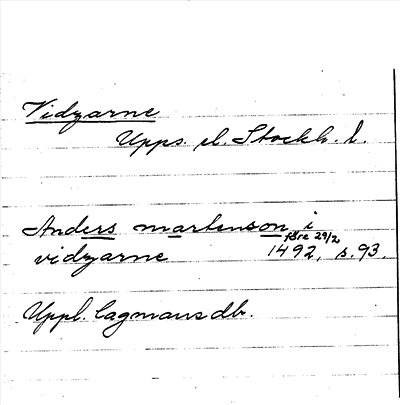 Vidzarne
Upps. el. Stockh. l.
Anders martenson i
före 29/2
vidzarne 1492, s. 93.
Uppl. lagmans db.